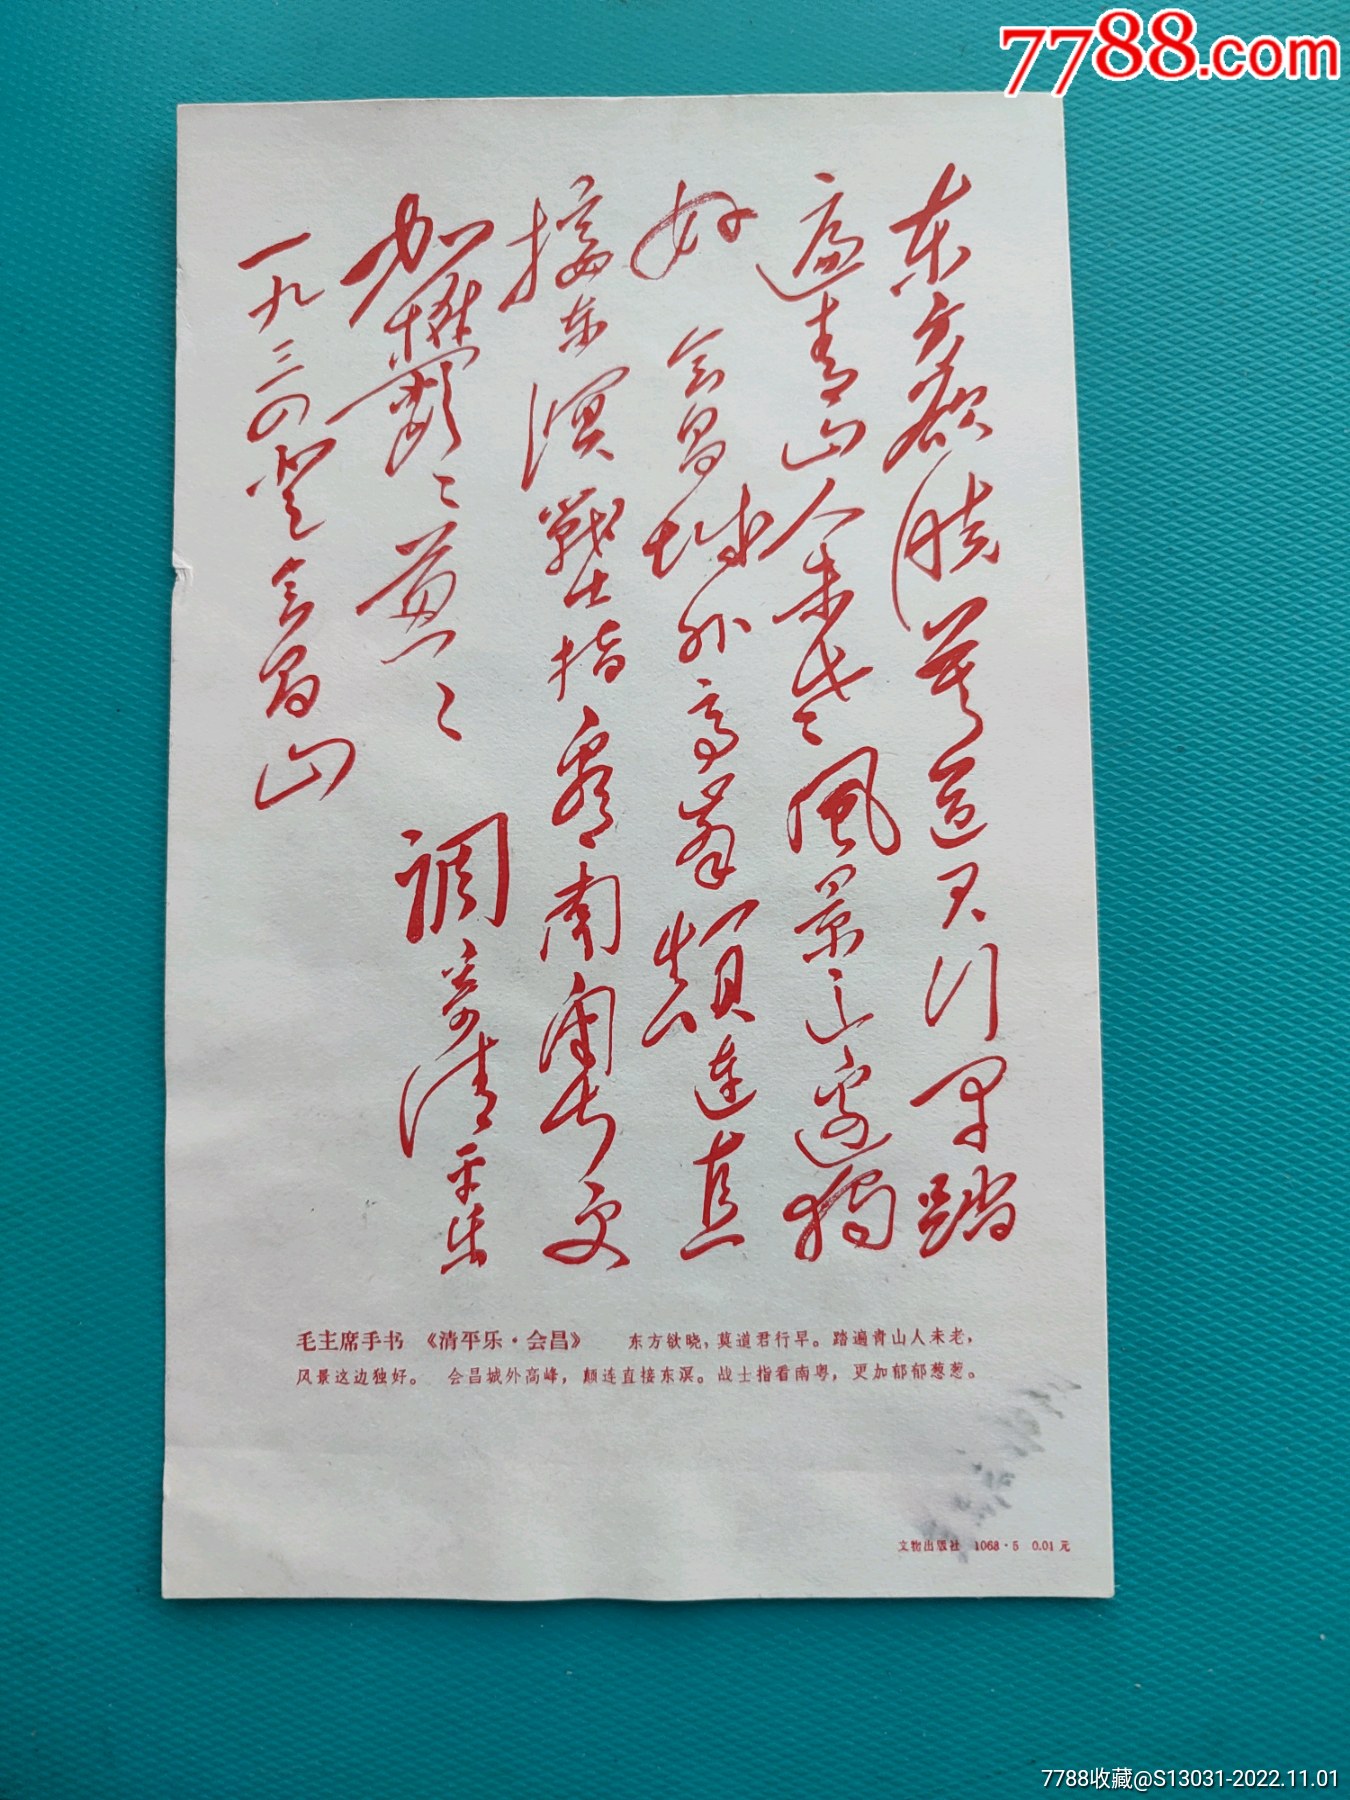 7788.com
东方欲晓莫道君行早踏
遍青山人未老風景这邊獨
好 会昌城外高峯颠连直
接东溟戰士指看南粤更
加欝〻葱〻 調寄清平乐
一九三四登会昌山
毛主席手书 《清平乐·会昌》 东方欲晓，莫道君行早。踏遍青山人未老，
风景这边独好。 会昌城外高峰，颠连直接东溟。战士指看南粤，更加郁郁葱葱。
文物出版社 1068·5 0.01元
7788收藏@S13031-2022.11.01